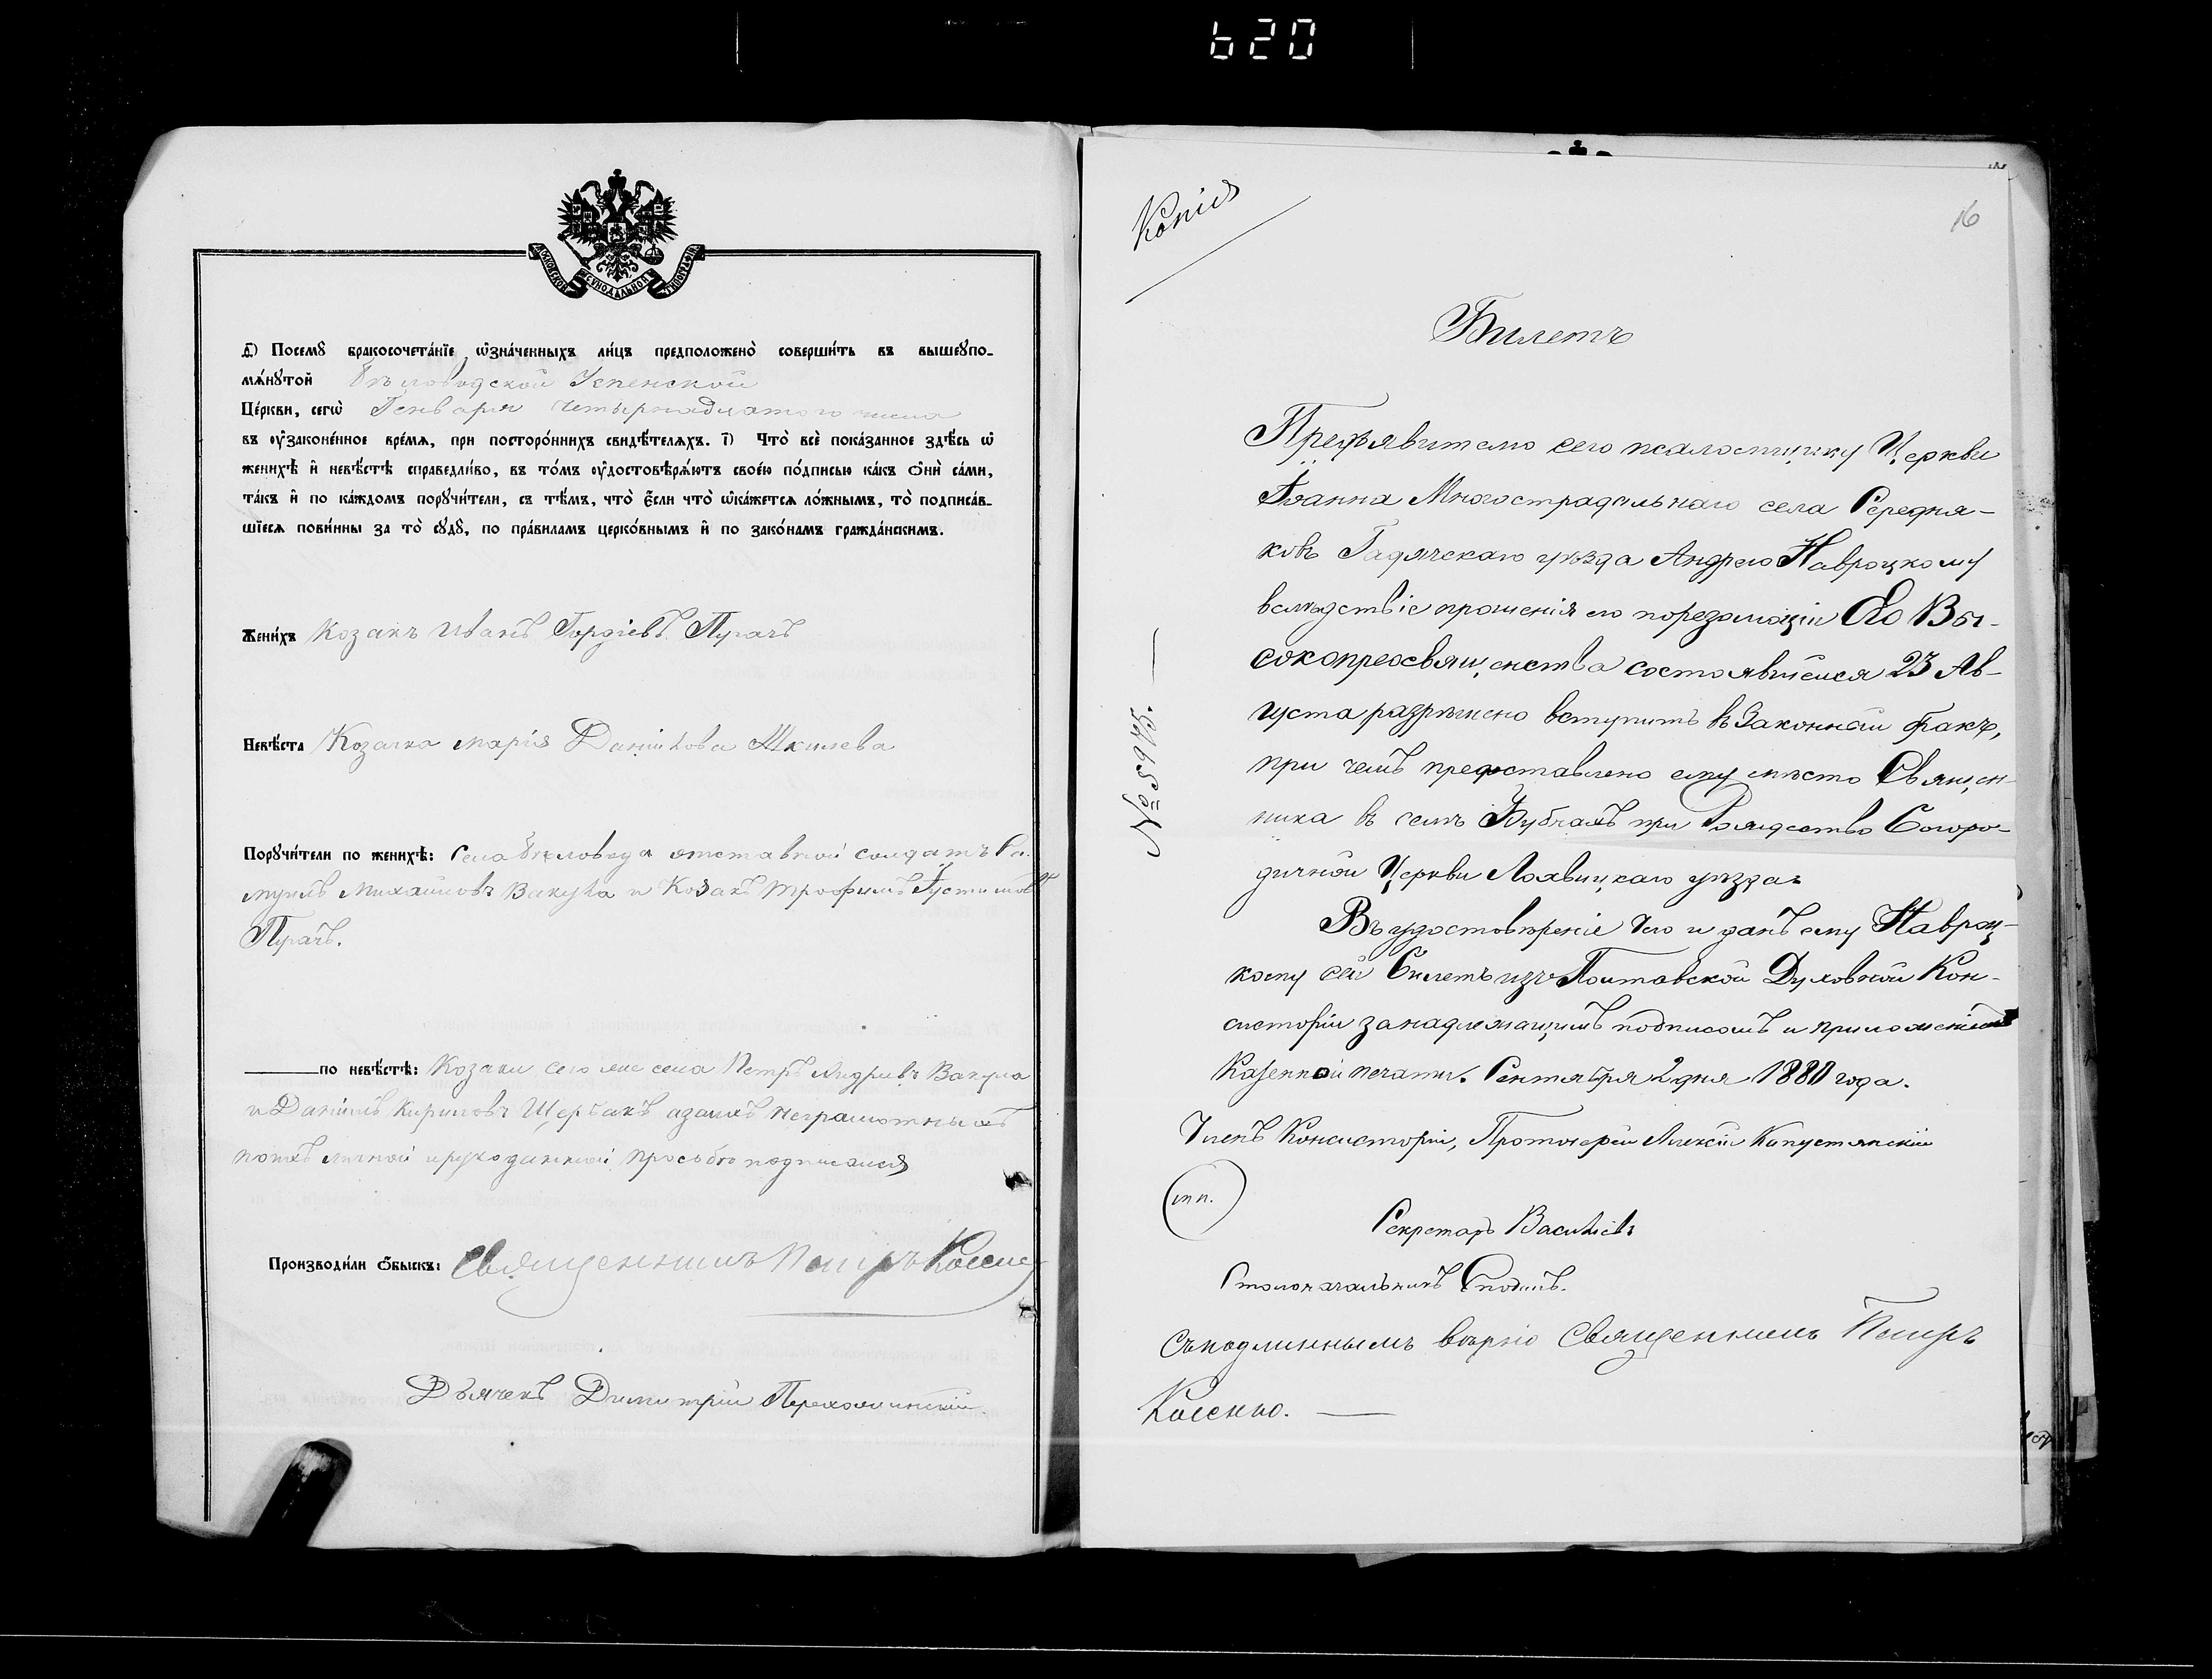 620
МОСКОВСКОЙ СѴНОДАЛЬНОЙ ТИПОГРАФІИ
Ѳ҃) Посемꙋ̀ бракосочета́нїе ѡ҆зна́ченныхъ ли́цъ предположено̀ соверши́ть въ вышеꙋпо-
мѧ́нꙋтой Бѣловодской Успенской
Це́ркви, сегѡ̀ Генваря четырнадцатого числа
въ ᲂу҆законе́нное вре́мѧ, при посторо́ннихъ свидѣ́телѧхъ. І҃) Что̀ всѐ пока́занное здѣ́сь ѡ҆
женихѣ̀ и҆ невѣ́стѣ справедли́во, въ то́мъ ᲂу҆достовѣрѧ́ютъ свое́ю по́дписью ка́къ ѻ҆нѝ са́ми,
та́къ и҆ по ка́ждомъ порꙋчи́тели, съ тѣ́мъ, что̀ є҆́сли что̀ ѡ҆ка́жетсѧ ло́жнымъ, то̀ подписа́в-
шїесѧ пови́нны за то̀ сꙋдꙋ̀, по пра́виламъ церко́внымъ и҆ по зако́намъ гражда́нскимъ.
Жени́хъ Козакъ Иванъ Гордіевъ Пугачъ
Невѣ́ста Козачка Марія Даніилова Шкилева
Порꙋчи́тели по женихѣ̀: Села Бѣловода отставной солдатъ Са-
муилъ Михайловъ Вакула и Козакъ Трофимъ Іустимовъ
Пугачъ.
по невѣ́стѣ: Козаки сего же села Петръ Андріевъ Вакула
и Даніилъ Кириловъ Щербакъ а за ихъ неграмотныхъ
по ихъ личной и рукоданной просьбѣ подписался
Производи́ли ѻ҆́быскъ: Священникъ Петръ Косенко
Дьячекъ Димитрій
Копія
16
Билетъ
Предъявителю сего псаломщику Церкви
Іоанна Многострадальнаго села Середня-
ковъ Гадячскаго уѣзда Андрею Навроцкому
вслѣдствіе прошенія его по резолюціи Его Вы-
сокопреосвященства состоявшейся 23 Ав-
густа разрѣшено вступить въ Законный бракъ,
при чемъ предоставлено ему мѣсто Священ-
ника въ селѣ Бубнахъ при Рождество Богоро-
дичной Церкви Лохвицкаго уѣзда.
Въ удостовѣреніе чего и данъ ему Навроц-
кому сей билетъ изъ Полтавской Духовной Кон-
систоріи за надлежащимъ подписомъ и приложеніемъ
Казенной печати. Сентября 2 дня 1880 года.
№ 5975. —
Членъ Консисторіи, Протоіерей Алексій Капустянскій
(м п.)
Секретарь Васильевъ
Столоначальникъ
Съ подлиннымъ вѣрно Священникъ Петръ
Косенко. —